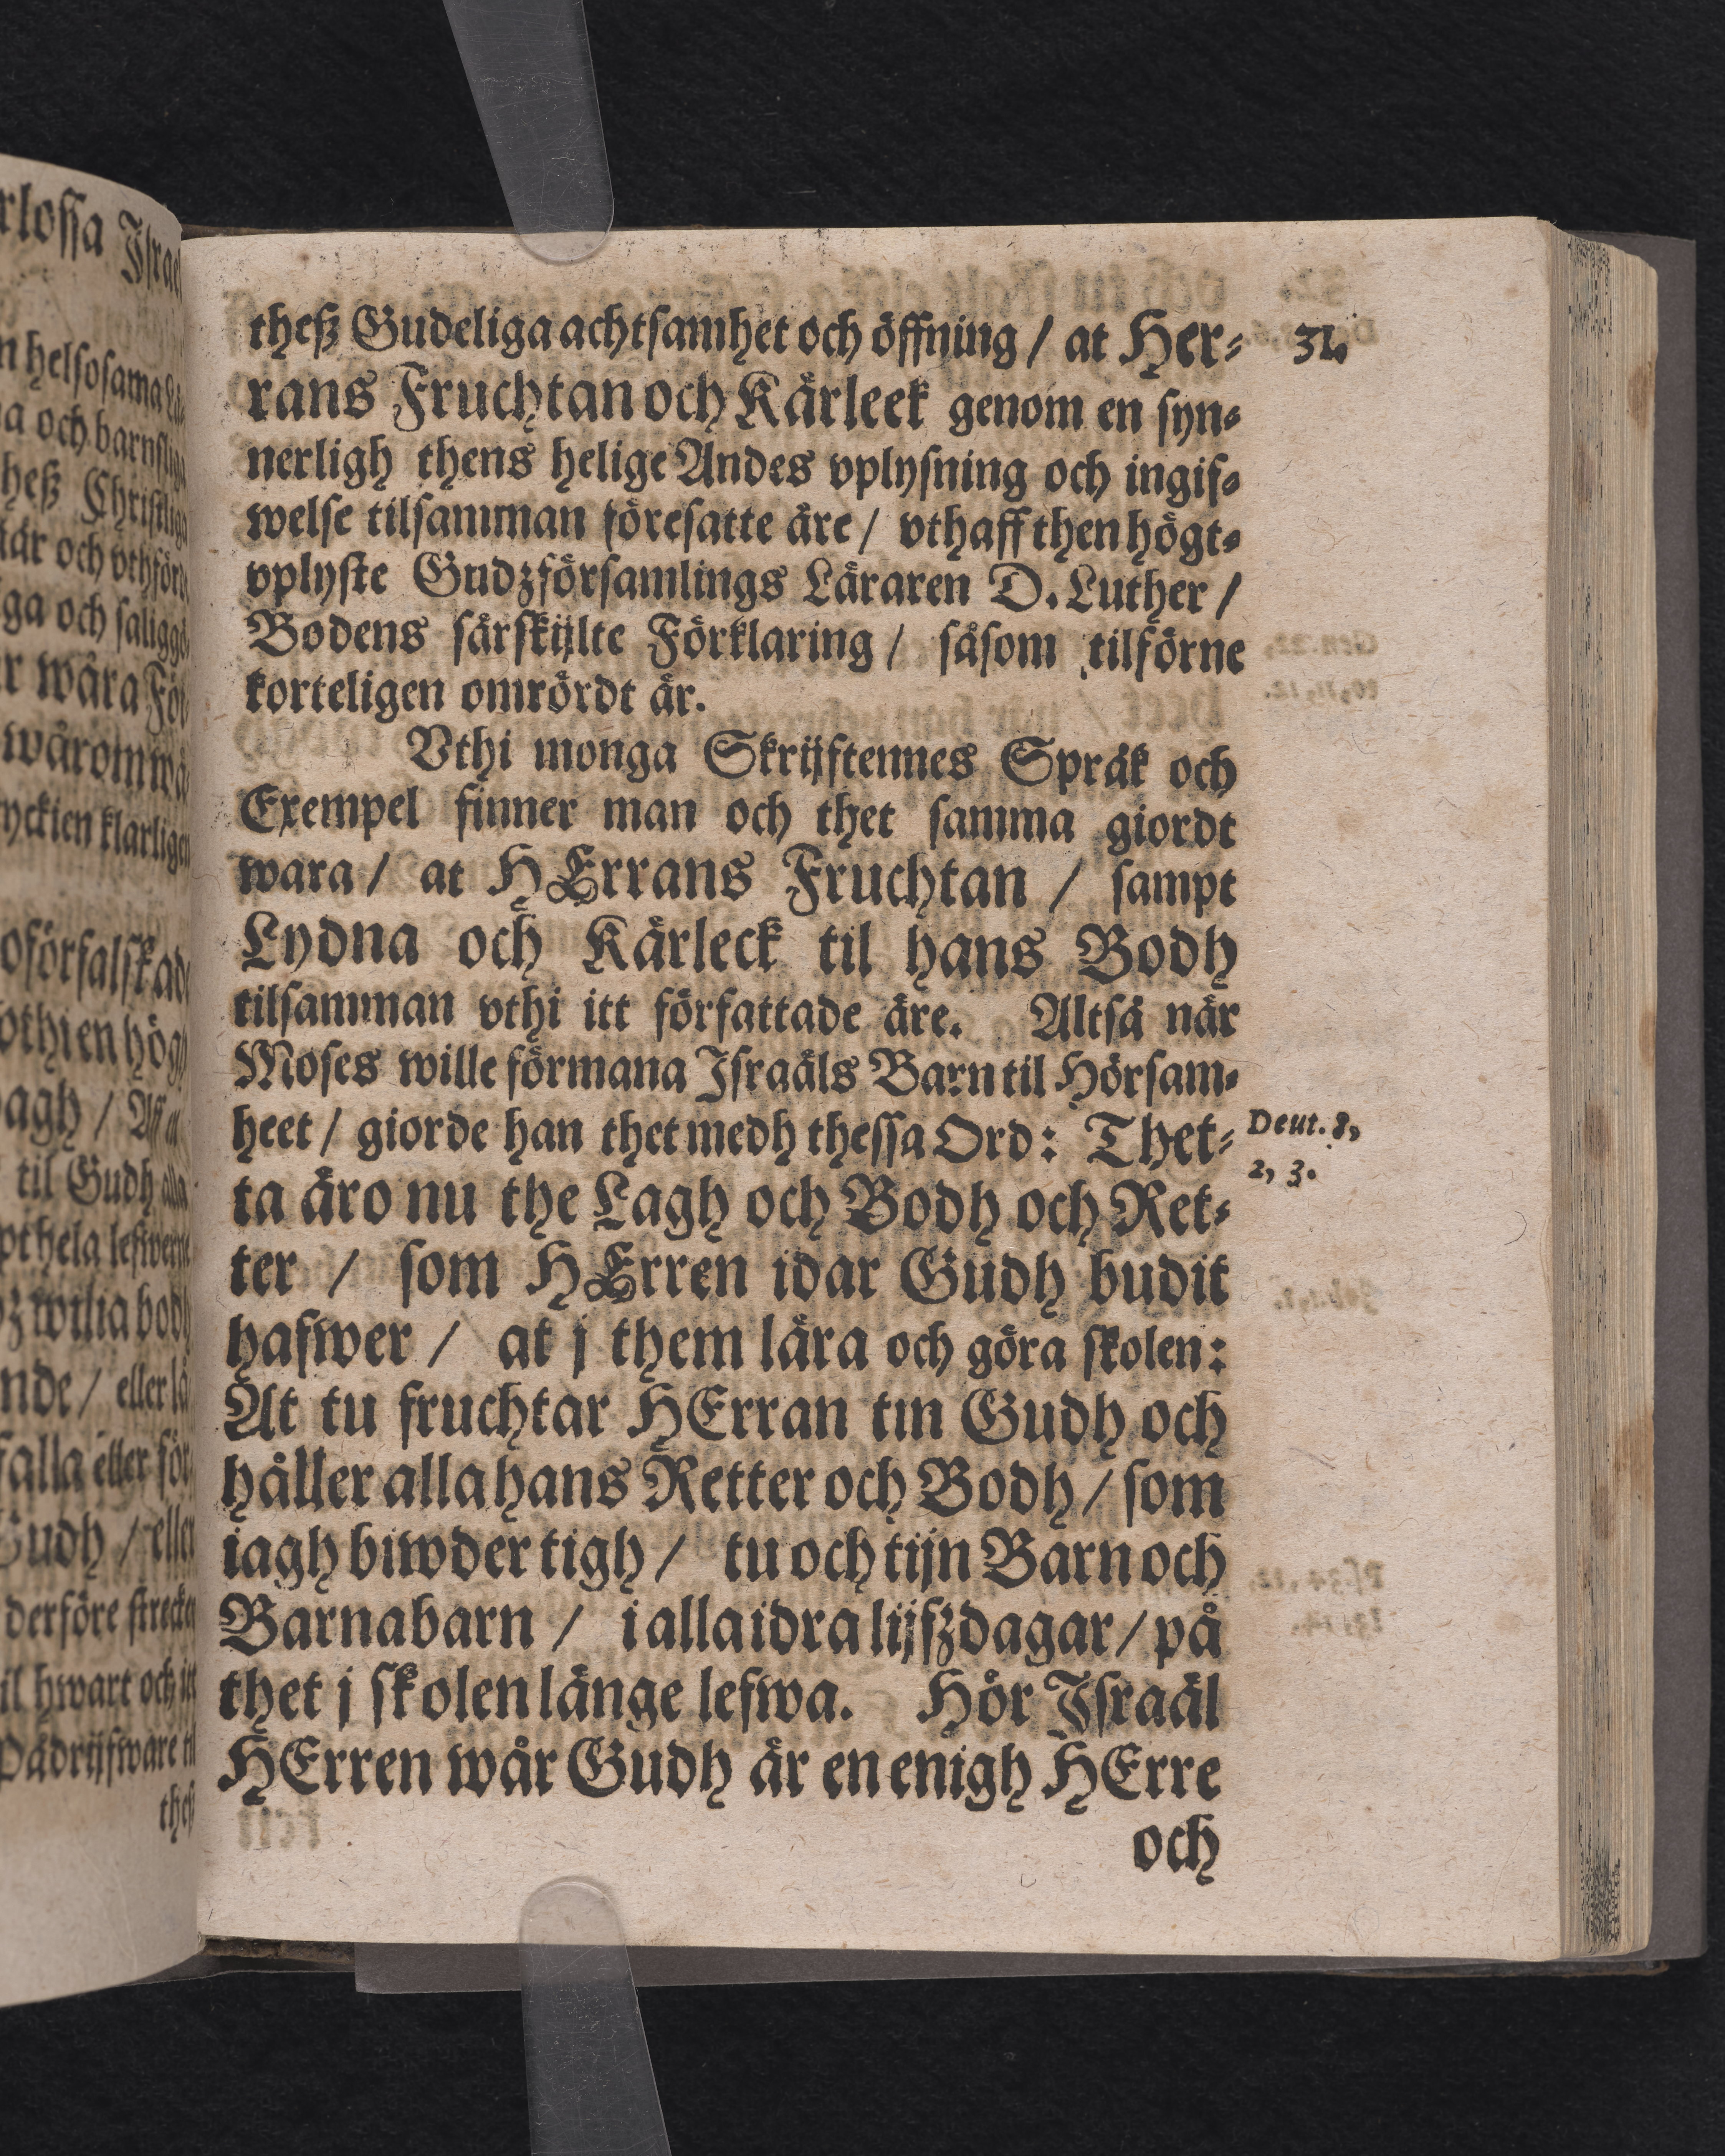 theß Gudeliga achtsamhet och öffning / at Her-
31.
rans Fruchtan och Kärleek genom en syn-
nerligh thens helige Andes vplysning och ingif-
welse tilsamman föresatte äre / vthaff then högt-
vplyste Gudzförsamlings Läraren D. Luther /
Bodens särskijlte Förklaring / såsom tilförne
korteligen omrördt är.
Vthi monga Skrijftennes Språk och
Exempel finner man och thet samma giordt
wara / at HErrans Fruchtan / sampt
Lydna och Kärleck til hans Bodh
tilsamman vthi itt författade äre. Altså när
Moses wille förmana Israäls Barn til Hörsam-
heet / giorde han thet medh thessa Ord: Thet-
Deut. 8,
2, 3.
ta äro nu the Lagh och Bodh och Ret-
ter / som HErren idar Gudh budit
hafwer / at j them lära och göra skolen:
At tu fruchtar HErran tin Gudh och
håller alla hans Retter och Bodh / som
iagh biwder tigh / tu och tijn Barn och
Barnabarn / i alla idra lijfzdagar / på
thet j skolen länge lefwa. Hör Israäl
HErren wår Gudh är en enigh HErre
och